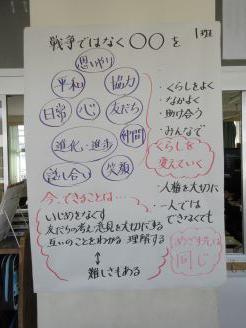 戦争ではなく○○を
1班
思いやり
平和
協力
日常
心
友だち
進化・進歩
仲間
話し合い
笑顔
・くらしをよく
・なかよく
・助け合う
・みんなで
くらしを
変えていく
・人権を大切に
・一人では
できなくても
めざす先は
同じ
今、できることは…
いじめをなくす
友だちの考え・意見を大切にする
互いのことをわかる 理解する
↕
難しさもある